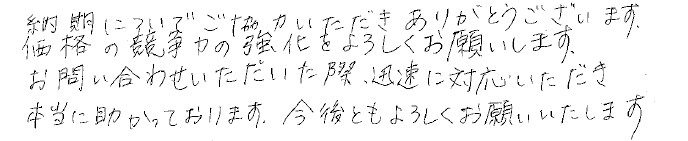 納期についてご協力いただきありがとうございます.
価格の競争力の強化をよろしくお願いします.
お問い合わせいただいた際、迅速に対応いただき
本当に助かっております. 今後ともよろしくお願いいたします